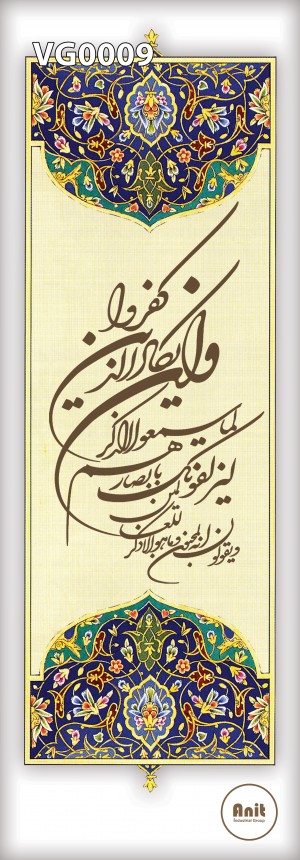 VG0009
وان یکاد الذین کفروا
لیزلقونک بابصارهم
لما سمعوا الذکر
ویقولون انه لمجنون
وما هو الا ذکر
للعالمین
Anit
Industrial Group